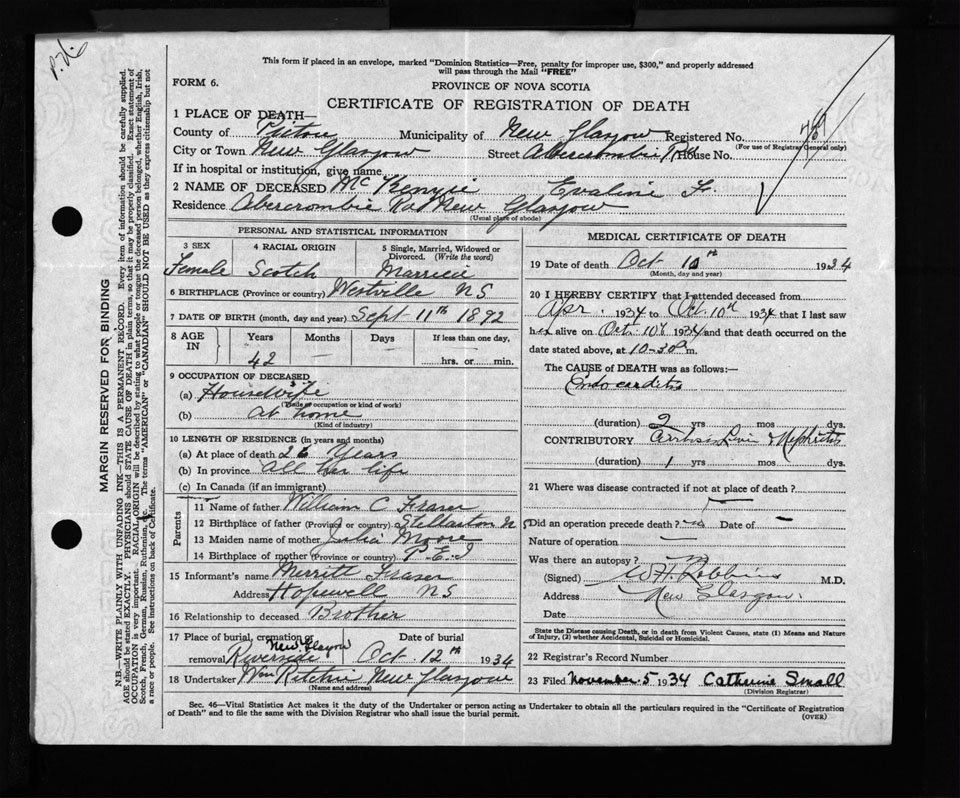 P.H.
This form if placed in an envelope, marked "Dominion Statistics—Free, penalty for improper use, $300," and properly addressed
will pass through the Mail "FREE"
FORM 6.
PROVINCE OF NOVA SCOTIA
CERTIFICATE OF REGISTRATION OF DEATH
1 PLACE OF DEATH—
County of Pictou Municipality of New Glasgow Registered No.
(For use of Registrar General only)
City or Town New Glasgow Street Abercrombie Rd House No.
If in hospital or institution, give name
2 NAME OF DECEASED McKenzie Evaline F.
Residence Abercrombie Rd New Glasgow
(Usual place of abode)
PERSONAL AND STATISTICAL INFORMATION
3 SEX 4 RACIAL ORIGIN 5 Single, Married, Widowed or Divorced. (Write the word)
Female Scotch Married
6 BIRTHPLACE (Province or country) Westville NS
7 DATE OF BIRTH (month, day and year) Sept 11th 1892
8 AGE IN Years Months Days If less than one day,
42 — — hrs. or min.
9 OCCUPATION OF DECEASED
(a) Housewife
(Trade or occupation or kind of work)
(b) at home
(Kind of industry)
10 LENGTH OF RESIDENCE (in years and months)
(a) At place of death 26 Years
(b) In province all her life
(c) In Canada (if an immigrant)
Parents
11 Name of father William C Fraser
12 Birthplace of father (Province or country) Stellarton NS
13 Maiden name of mother Julia Moore
14 Birthplace of mother (Province or country) P E I
15 Informant's name Merritt Fraser
Address Hopewell NS
16 Relationship to deceased Brother
17 Place of burial, cremation or removal Riverside New Glasgow Date of burial Oct. 12th 1934
18 Undertaker Wm Ritchie New Glasgow
(Name and address)
MEDICAL CERTIFICATE OF DEATH
19 Date of death Oct 10th 1934
(Month, day and year)
20 I HEREBY CERTIFY that I attended deceased from
Apr. 1934 to Oct. 10th 1934 that I last saw
her alive on Oct. 10th 1934 and that death occurred on
date stated above, at 10-30 m.
The CAUSE of DEATH was as follows:—
Endocarditis
(duration) 2 yrs mos dys.
CONTRIBUTORY Liver & Nephritis
(duration) 1 yrs mos dys.
21 Where was disease contracted if not at place of death?
Did an operation precede death? Date of —
Nature of operation —
Was there an autopsy?
(Signed) W H Robbins M.D.
Address New Glasgow
Date
State the Disease causing Death, or in death from Violent Causes, state (1) Means and Nature
of Injury, (2) whether Accidental, Suicidal or Homicidal.
22 Registrar's Record Number
23 Filed November 5 1934 Catherine Small
(Division Registrar)
Sec. 46—Vital Statistics Act makes it the duty of the Undertaker or person acting as Undertaker to obtain all the particulars required in the "Certificate of Registration
of Death" and to file the same with the Division Registrar who shall issue the burial permit.
(OVER)
MARGIN RESERVED FOR BINDING
N.B.—WRITE PLAINLY WITH UNFADING INK—THIS IS A PERMANENT RECORD. Every item of information should be carefully supplied.
AGE should be stated EXACTLY. PHYSICIANS should STATE CAUSE OF DEATH in plain terms, so that it may be properly classified. Exact statement of
OCCUPATION is very important. RACIAL ORIGIN will be described by stating to what people or tongue the deceased person belonged, whether English, Irish,
Scotch, French, German, Russian, Ruthenian, etc. The terms "AMERICAN" or "CANADIAN" SHOULD NOT BE USED as they express citizenship but not
a race or people. See instructions on back of Certificate.